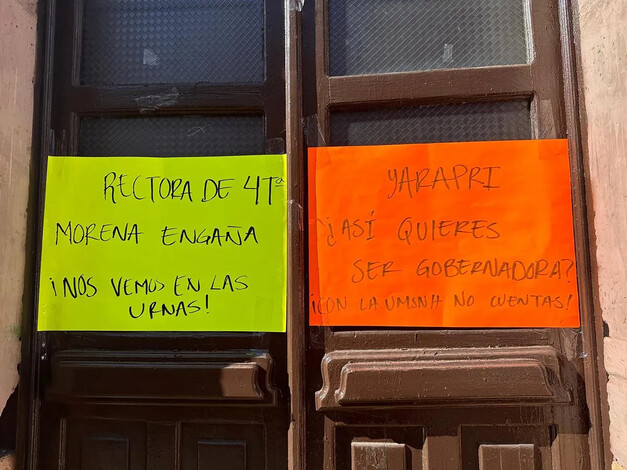 RECTORA DE 4Tª
MORENA ENGAÑA
¡NOS VEMOS EN LAS
URNAS!
YARAPRI
¿ASÍ QUIERES
SER GOBERNADORA?
¡CON LA UMSNH NO CUENTAS!